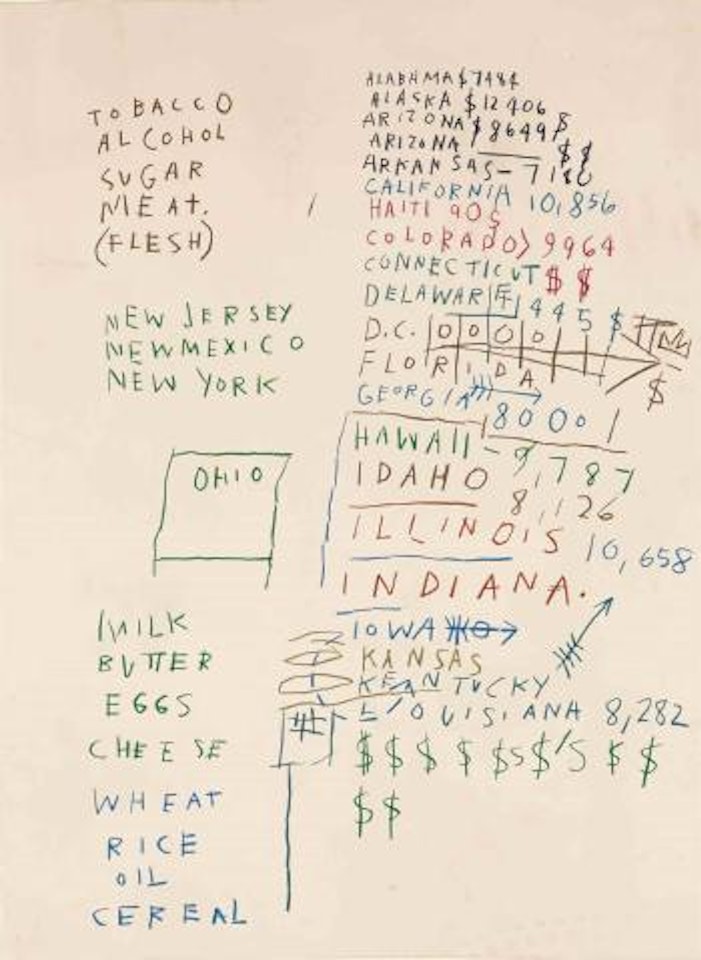 TOBACCO
ALCOHOL
SUGAR
MEAT.
(FLESH)
NEW JERSEY
NEW MEXICO
NEW YORK
OHIO
MILK
BUTTER
EGGS
CHEESE
WHEAT
RICE
OIL
CEREAL
ALABAMA $7484
ALASKA $12406
ARIZONA $8649 $
ARIZONA $$
ARKANSAS-
CALIFORNIA 10,856
HAITI 90$
COLORADO) 9964
CONNECTICUT $ $
DELAWARE 445 $
D.C. 0000
FLORIDA $
GEORGIA
8000 1
HAWAII - 9,787
IDAHO
8,126
ILLINOIS 10,658
INDIANA.
IOWA
KANSAS
KENTUCKY
L/OUISIANA 8,282
$ $ $ $ $S$'S $ $
$$